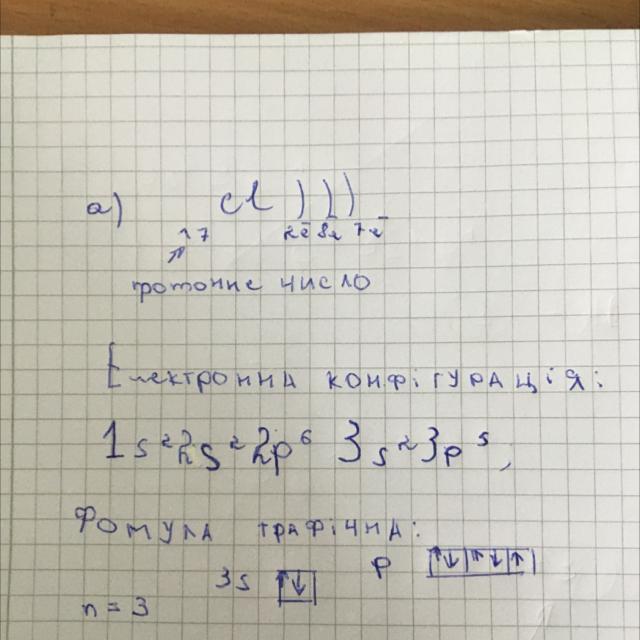 а) Cl )))
17 2e 8e 7e
протонне число
Електронна конфігурація:
1s² 2s² 2p⁶ 3s² 3p⁵,
Фомула графічна:
3s ↑↓ p ↑↓ ↑↓ ↑
n = 3